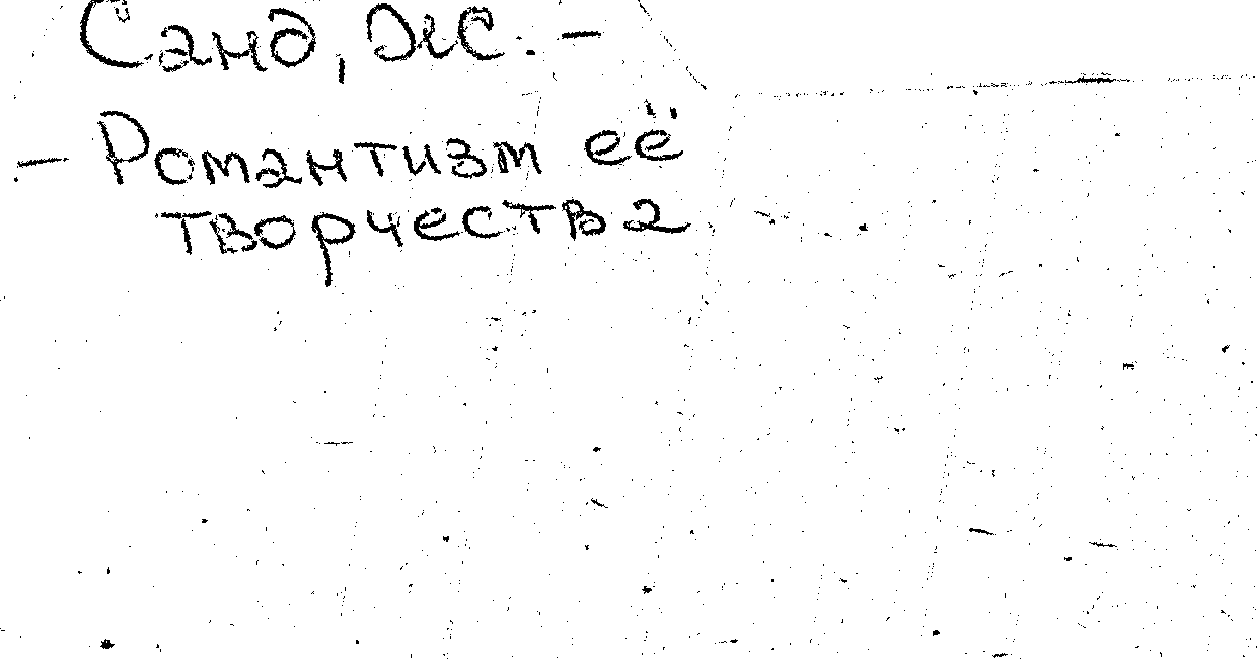 Санд, Ж. -
- Романтизм её
творчества